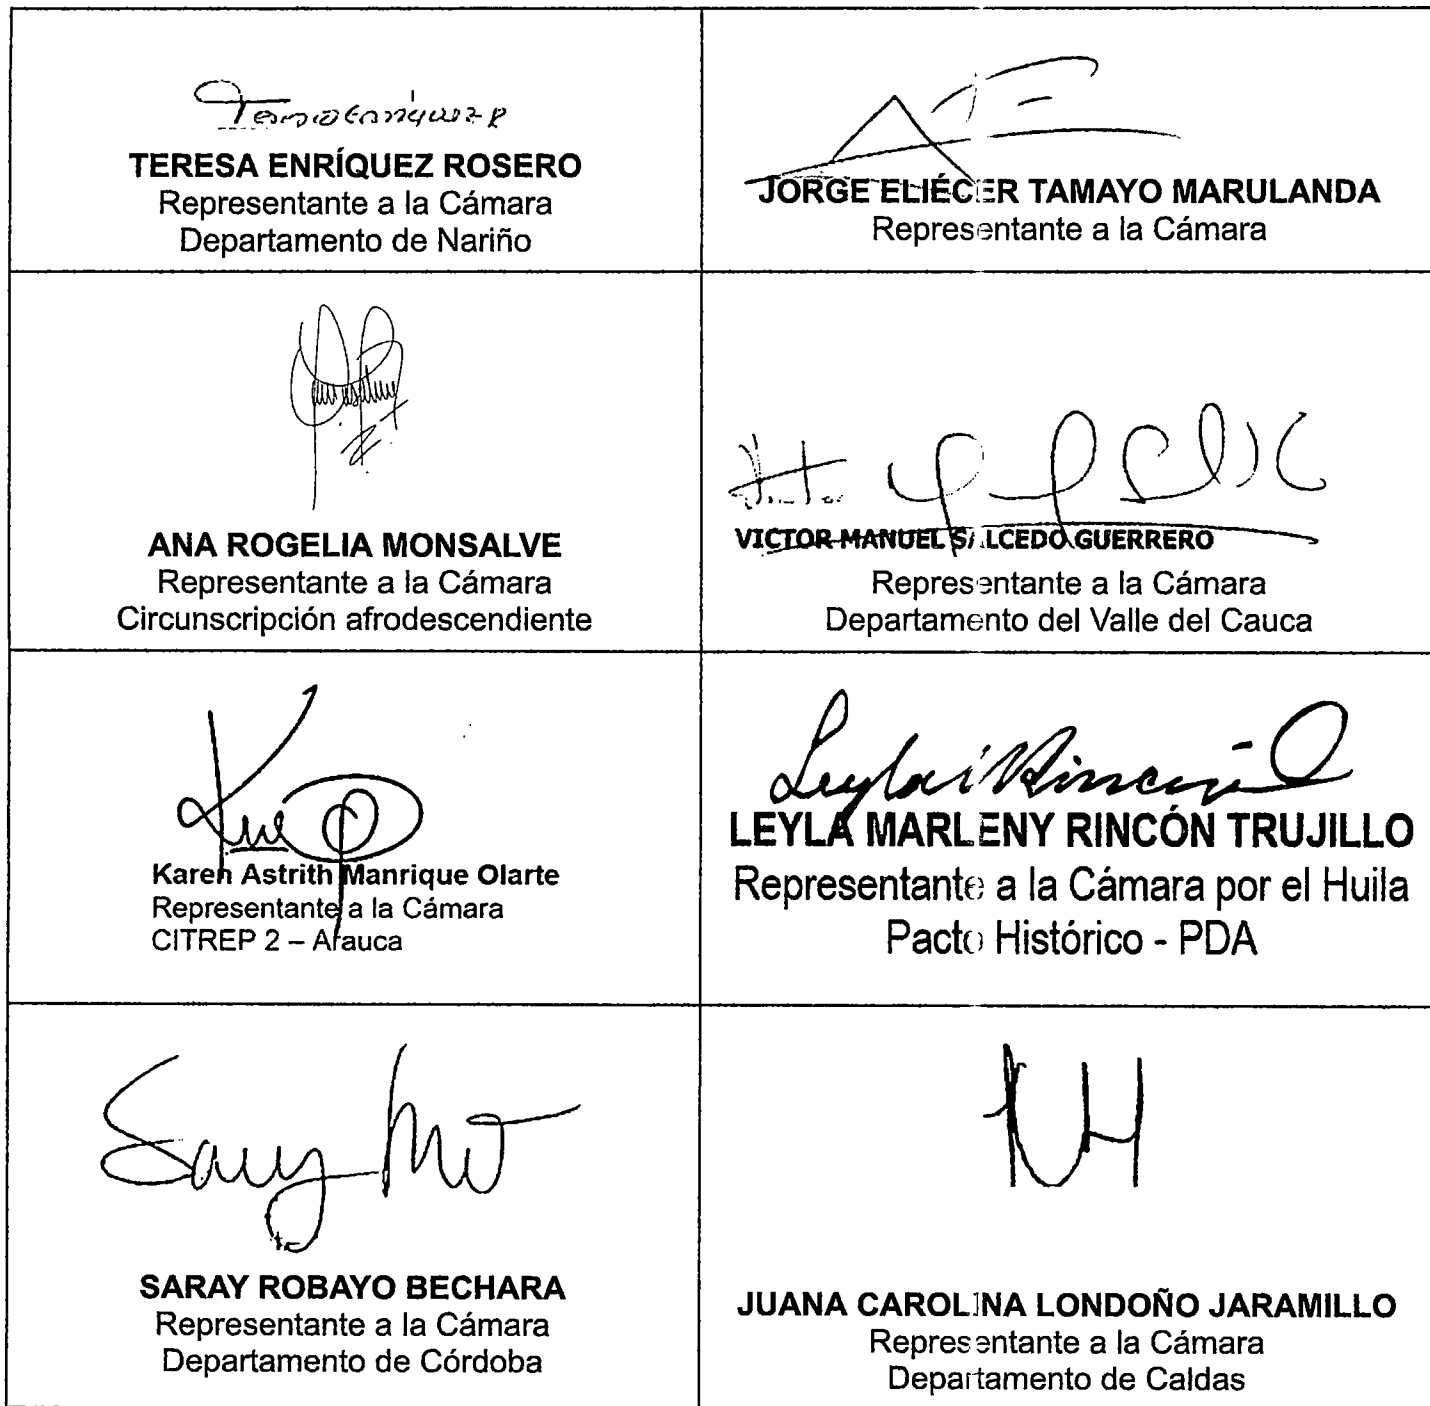 Teresa Enríquez R
TERESA ENRÍQUEZ ROSERO
Representante a la Cámara
Departamento de Nariño
JORGE ELIÉCER TAMAYO MARULANDA
Representante a la Cámara
ANA ROGELIA MONSALVE
Representante a la Cámara
Circunscripción afrodescendiente
VICTOR MANUEL SALCEDO GUERRERO
Representante a la Cámara
Departamento del Valle del Cauca
Karen Astrith Manrique Olarte
Representante a la Cámara
CITREP 2 – Arauca
Leyla Rincón
LEYLA MARLENY RINCÓN TRUJILLO
Representante a la Cámara por el Huila
Pacto Histórico - PDA
Saray
SARAY ROBAYO BECHARA
Representante a la Cámara
Departamento de Córdoba
JUANA CAROLINA LONDOÑO JARAMILLO
Representante a la Cámara
Departamento de Caldas